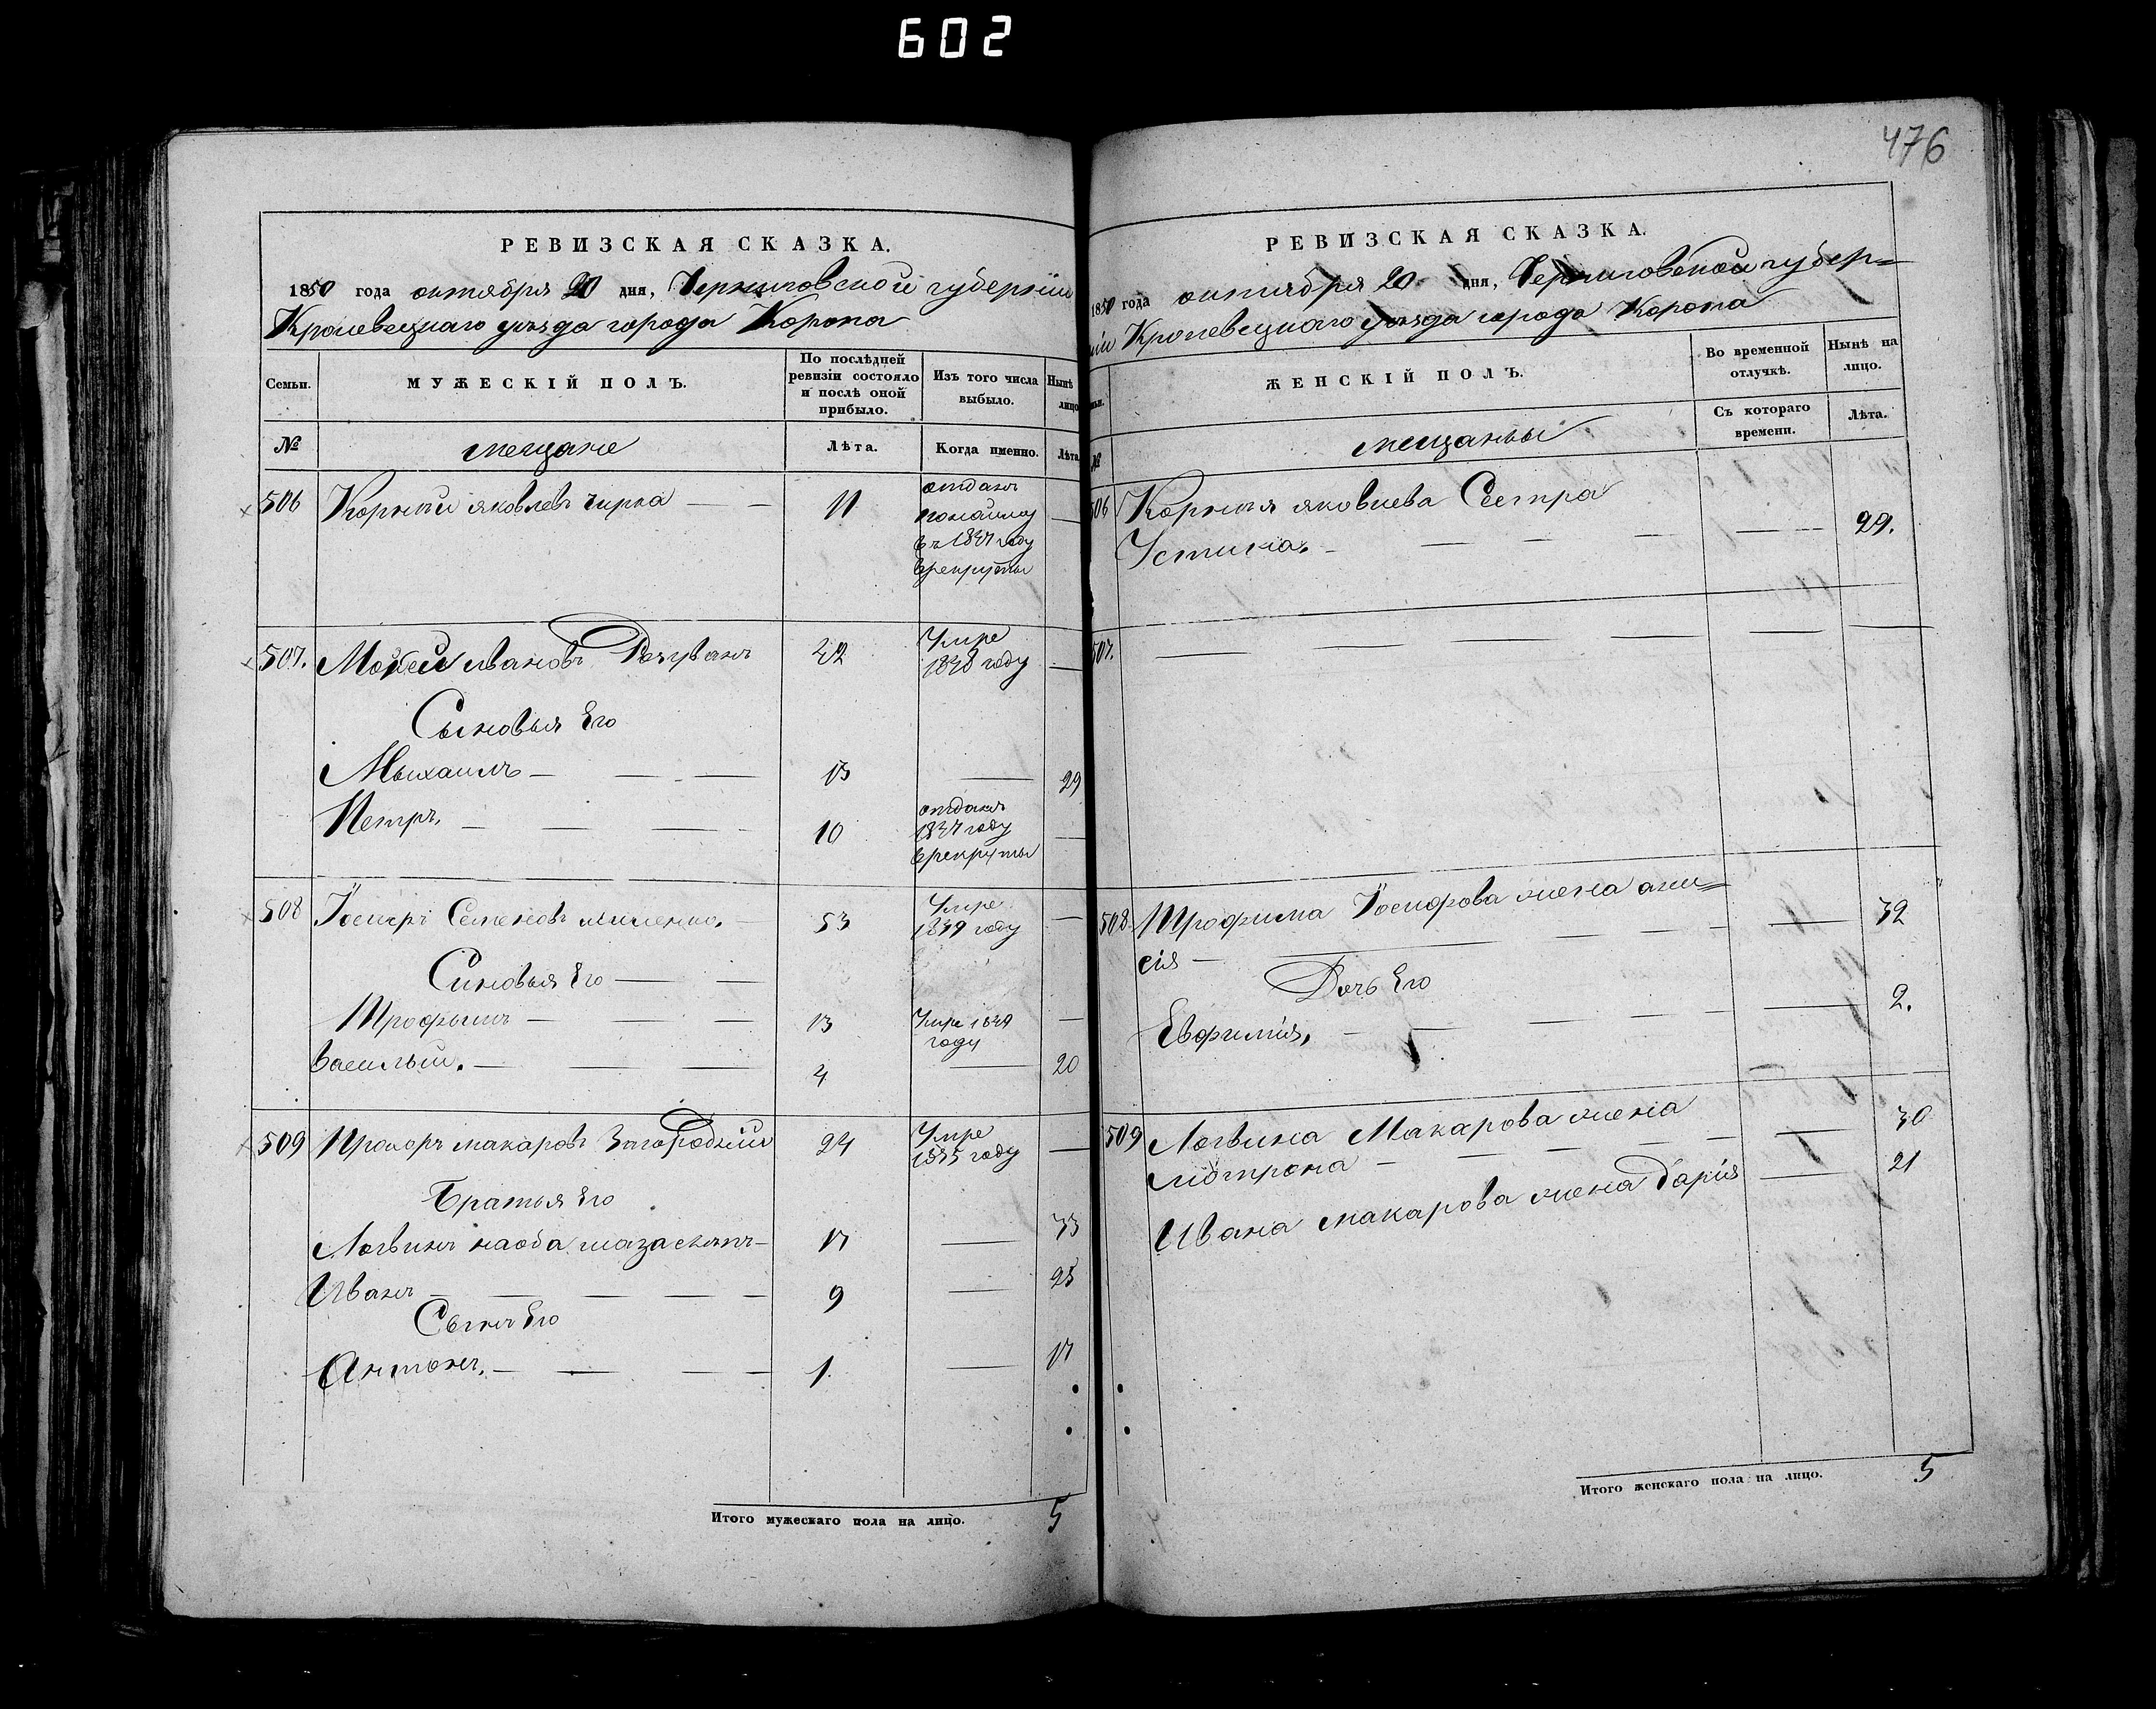 602
476
РЕВИЗСКАЯ СКАЗКА.
1850 года октября 20 дня, Черниговской губерніи
Кролевецкаго уезда города Коропа
Семьи.
МУЖЕСКІЙ ПОЛЪ.
По послѣдней ревизіи состояло и послѣ оной прибыло.
Изъ того числа выбыло.
Нынѣ лицо
№
мещане
Лѣта.
Когда именно.
Лѣта
506 Корнѣй яковлевъ Чирка 11 отданъ
понайму
въ 1847 году
врекруты
507. Мойсей ивановъ 42 Умре
1848 году
Сыновья Его
Мыхаилъ 13 29
Петръ, 10 отданъ
1847 году
врекруты
508 Семеновъ 53 Умре
1849 году
Синовья Его
Трофымъ 13 Умре 1849
году
василый. 4 20
509 Прохоръ макаровъ Загородний 24 Умре
1835 году
Братья Его
Логвинъ наоба глаза слепъ 17 33
Иванъ 9 25
Сынъ Его
Антонъ, 1. 17
Итого мужескаго пола на лицо. 5
РЕВИЗСКАЯ СКАЗКА.
1850 года октября 20 дня, Черниговской губер=
ніи Кролевецкаго уезда города Коропа
ЖЕНСКІЙ ПОЛЪ.
Во временной отлучкѣ.
Нынѣ на лицо.
№
мещаны
Съ котораго времени.
Лѣта.
506 Корнѣя яковлева Сестра
Устина. 29.
507.
508 Трофима Іосифова жена ани=
сія 32
Дочь Его
Евфимія, 2.
509 Логвина Макарова жена 30
Ивана макарова жена дарія 21
Итого женскаго пола на лицо. 5